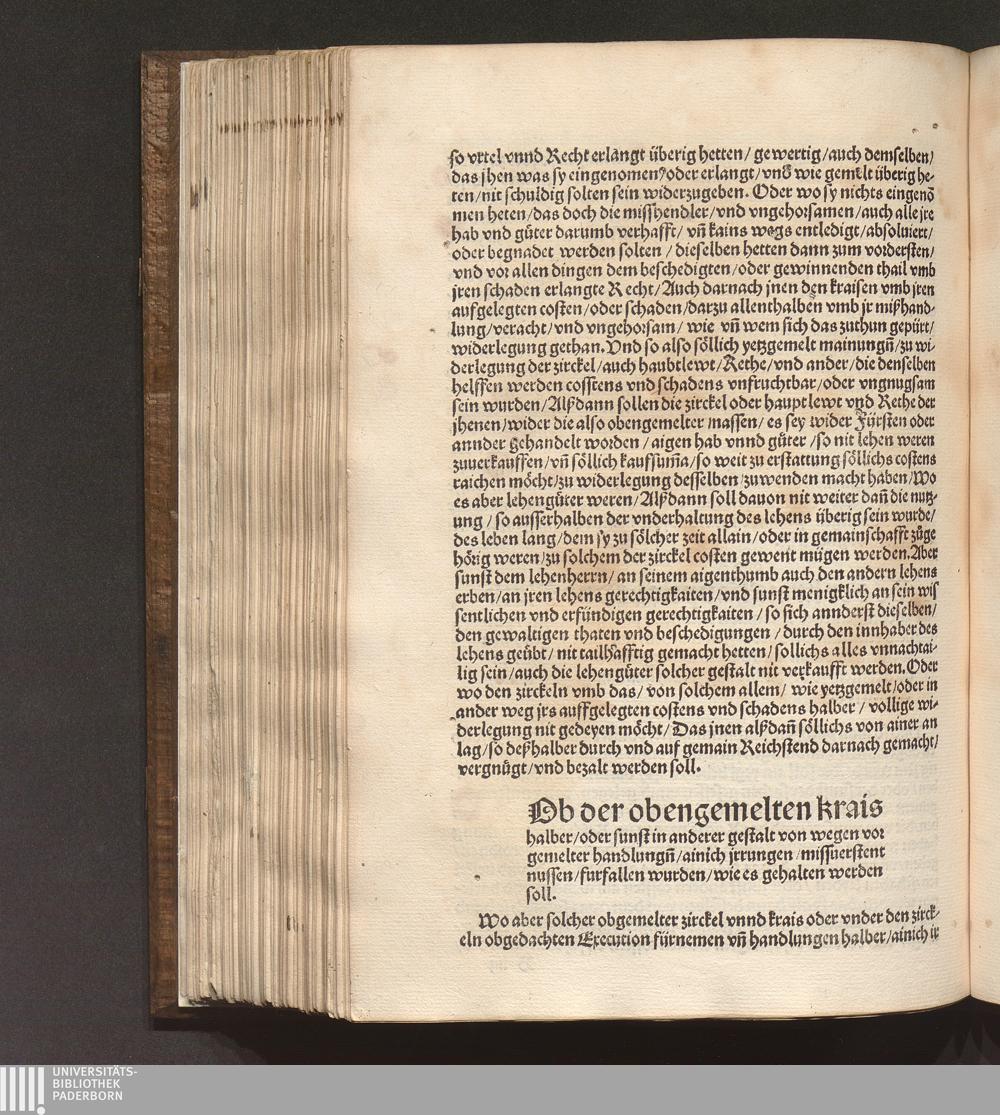 so vrtel vnnd Recht erlangt überig hetten/ gewertig/auch demselben/
das jhen was sy eingenomen/oder erlangt/vnd wie gemelt überig he-
ten/nit schuldig solten sein widerzugeben. Oder wo sy nichts eingenō
men heten/das doch die misshendler/vnd vngehorsamen/auch alle jre
hab vnd güter darumb verhafft/ vñ kains wegs entledigt/absoluiert/
oder begnadet werden solten / dieselben hetten dann zum vordersten/
vnd vor allen dingen dem beschedigten/oder gewinnenden thail vmb
jren schaden erlangte Recht/Auch darnach jnen den kraisen vmb jren
aufgelegten costen/oder schaden/darzu allenthalben vmb jr mißhand-
lung/veracht/vnd vngehorsam/ wie vñ wem sich das zuthun gepürt/
widerlegung gethan.Vnd so also söllich yetzgemelt mainungñ/zu wi-
derlegung der zirckel/auch haubtlewt/Rethe/vnd ander/die denselben
helffen werden cosstens vnd schadens vnfruchtbar/oder vngnugsam
sein wurden/Alßdann sollen die zirckel oder hauptlewt vnd Rethe der
jhenen/wider die also obengemelter massen/ es sey wider Fürsten oder
annder gehandelt worden / aigen hab vnnd güter /so nit lehen weren
zuuerkauffen/vñ söllich kaufsum̃a/so weit zu erstattung söllichs costens
raichen möcht/zu widerlegung desselben/zuwenden macht haben/Wo
es aber lehengüter weren/Alßdann soll dauon nit weiter dañ die nutz-
ung / so ausserhalben der vnderhaltung des lehens überig sein wurde/
des leben lang/dem sy zu sölcher zeit allain/oder in gemainschafft züge
hörig weren/zu solchem der zirckel costen gewent mügen werden.Aber
sunst dem lehenherrn/ an seinem aigenthumb auch den andern lehens
erben/an jren lehens gerechtigkaiten/vnd sunst menigklich an sein wis
sentlichen vnd erfündigen gerechtigkaiten / so sich annderst dieselben/
den gewaltigen thaten vnd beschedigungen / durch den innhaber des
lehens geübt/ nit tailhafftig gemacht hetten/sollichs alles vnnachtai-
lig sein/auch die lehengüter solcher gestalt nit verkaufft werden.Oder
wo den zirckeln vmb das/ von solchem allem/ wie yetzgemelt/oder in
ander weg jrs auffgelegten costens vnd schadens halber / vollige wi-
derlegung nit gedeyen möcht/Das jnen alßdañ söllichs von ainer an
lag/so deßhalber durch vnd auf gemain Reichstend darnach gemacht/
vergnügt/vnd bezalt werden soll.
Ob der obengemelten krais
halber/oder sunst in anderer gestalt von wegen vor
gemelter handlungñ/ainich jrrungen /missuerstent
nussen/furfallen wurden/wie es gehalten werden
soll.
Wo aber solcher obgemelter zirckel vnnd krais oder vnder den zirck-
eln obgedachten Execution fürnemen vñ handlungen halber/ainich ir
UNIVERSITÄTS-
BIBLIOTHEK
PADERBORN